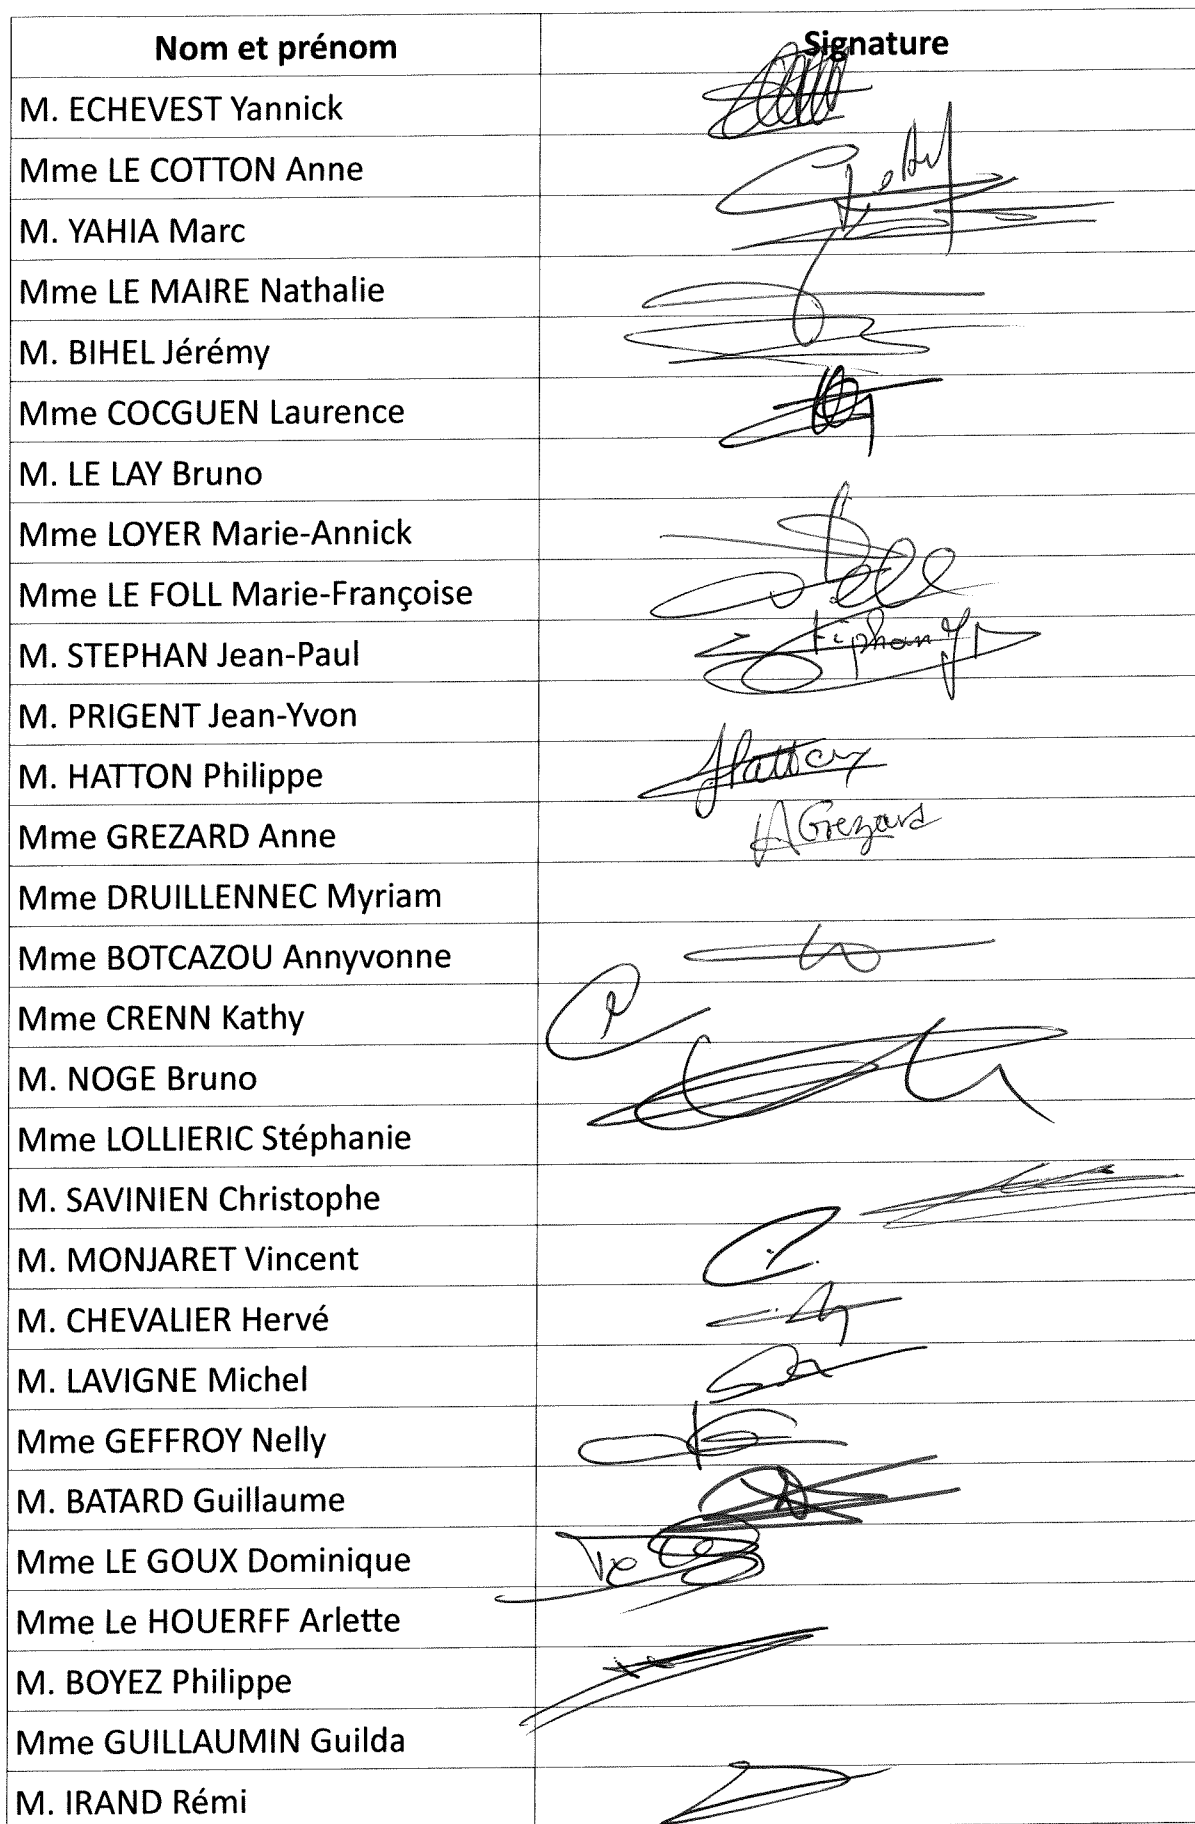 Nom et prénom Signature
M. ECHEVEST Yannick
Mme LE COTTON Anne
M. YAHIA Marc
Mme LE MAIRE Nathalie
M. BIHEL Jérémy
Mme COCGUEN Laurence
M. LE LAY Bruno
Mme LOYER Marie-Annick
Mme LE FOLL Marie-Françoise
M. STEPHAN Jean-Paul
M. PRIGENT Jean-Yvon
M. HATTON Philippe Hatton
Mme GREZARD Anne A Grezard
Mme DRUILLENNEC Myriam
Mme BOTCAZOU Annyvonne
Mme CRENN Kathy
M. NOGE Bruno
Mme LOLLIERIC Stéphanie
M. SAVINIEN Christophe
M. MONJARET Vincent
M. CHEVALIER Hervé
M. LAVIGNE Michel
Mme GEFFROY Nelly
M. BATARD Guillaume
Mme LE GOUX Dominique
Mme Le HOUERFF Arlette
M. BOYEZ Philippe
Mme GUILLAUMIN Guilda
M. IRAND Rémi